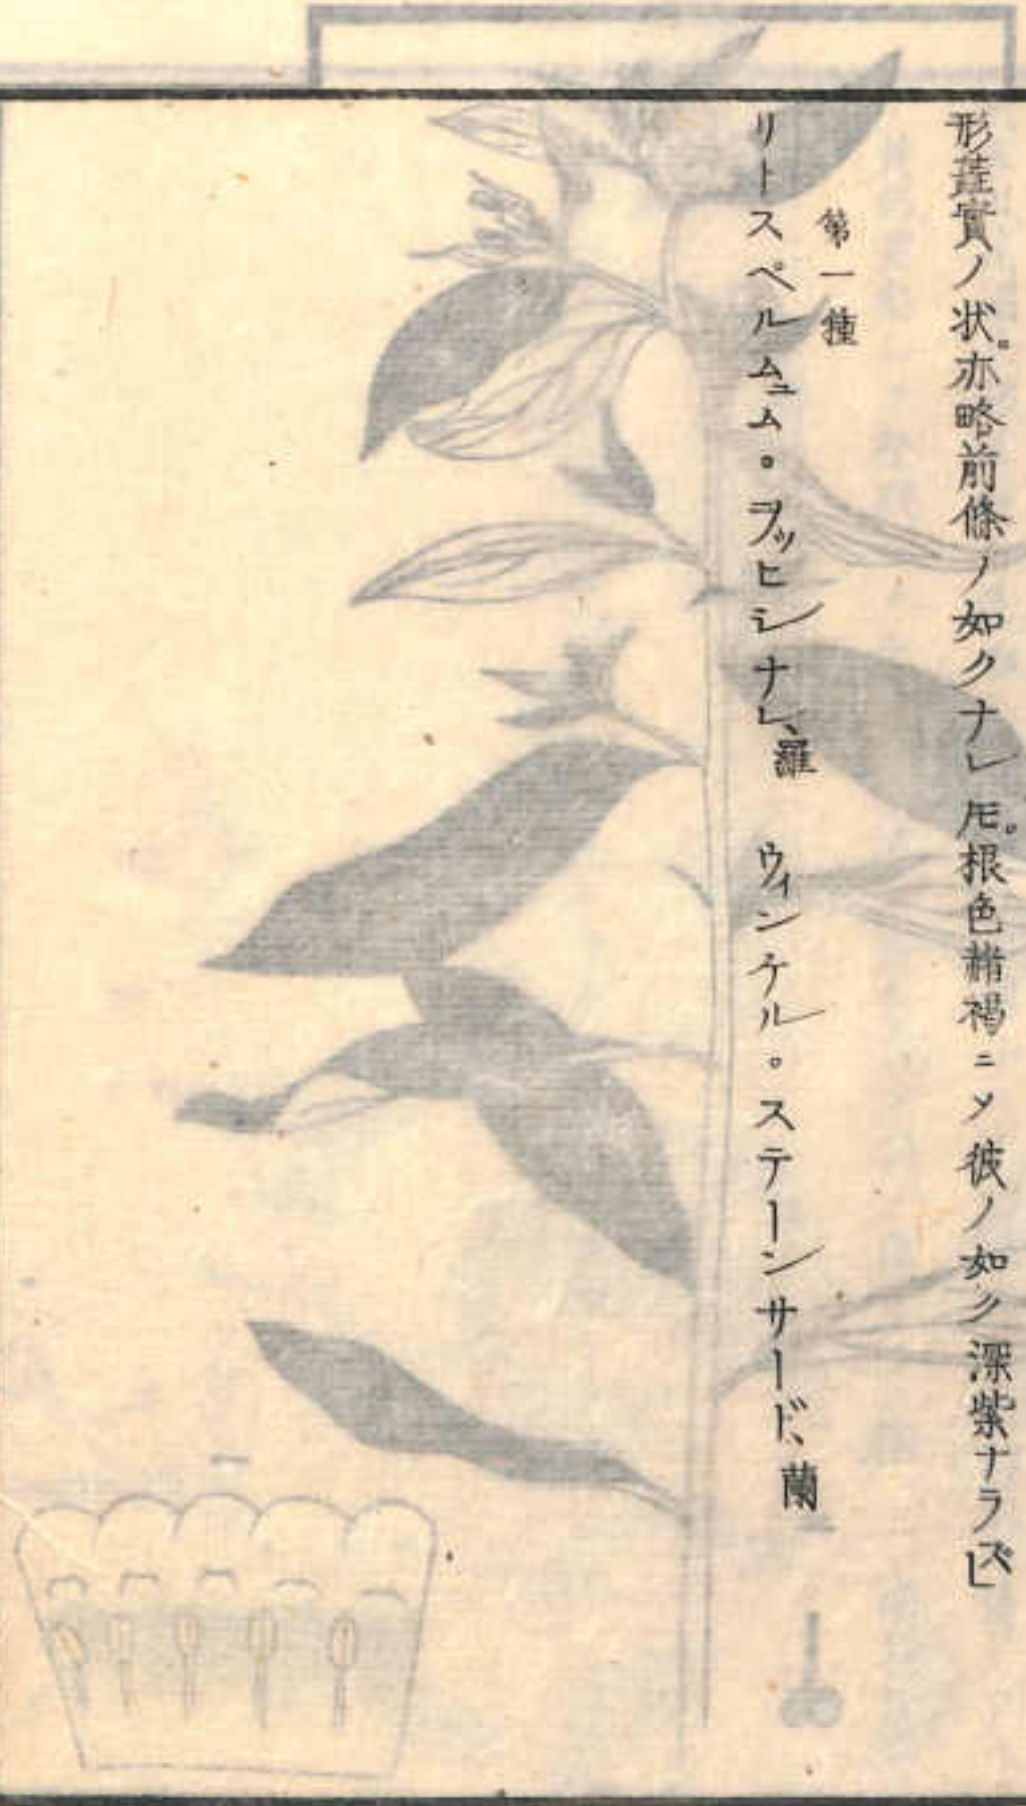 形蕋實ノ状。亦略前條ノ如クナレ𪜈。根色赭褐ニメ彼ノ如ク深紫ナラズ」
第一種
リートスペルミュム。ヲッヒシナレ、羅 ウィンケル。ステーンサード、蘭